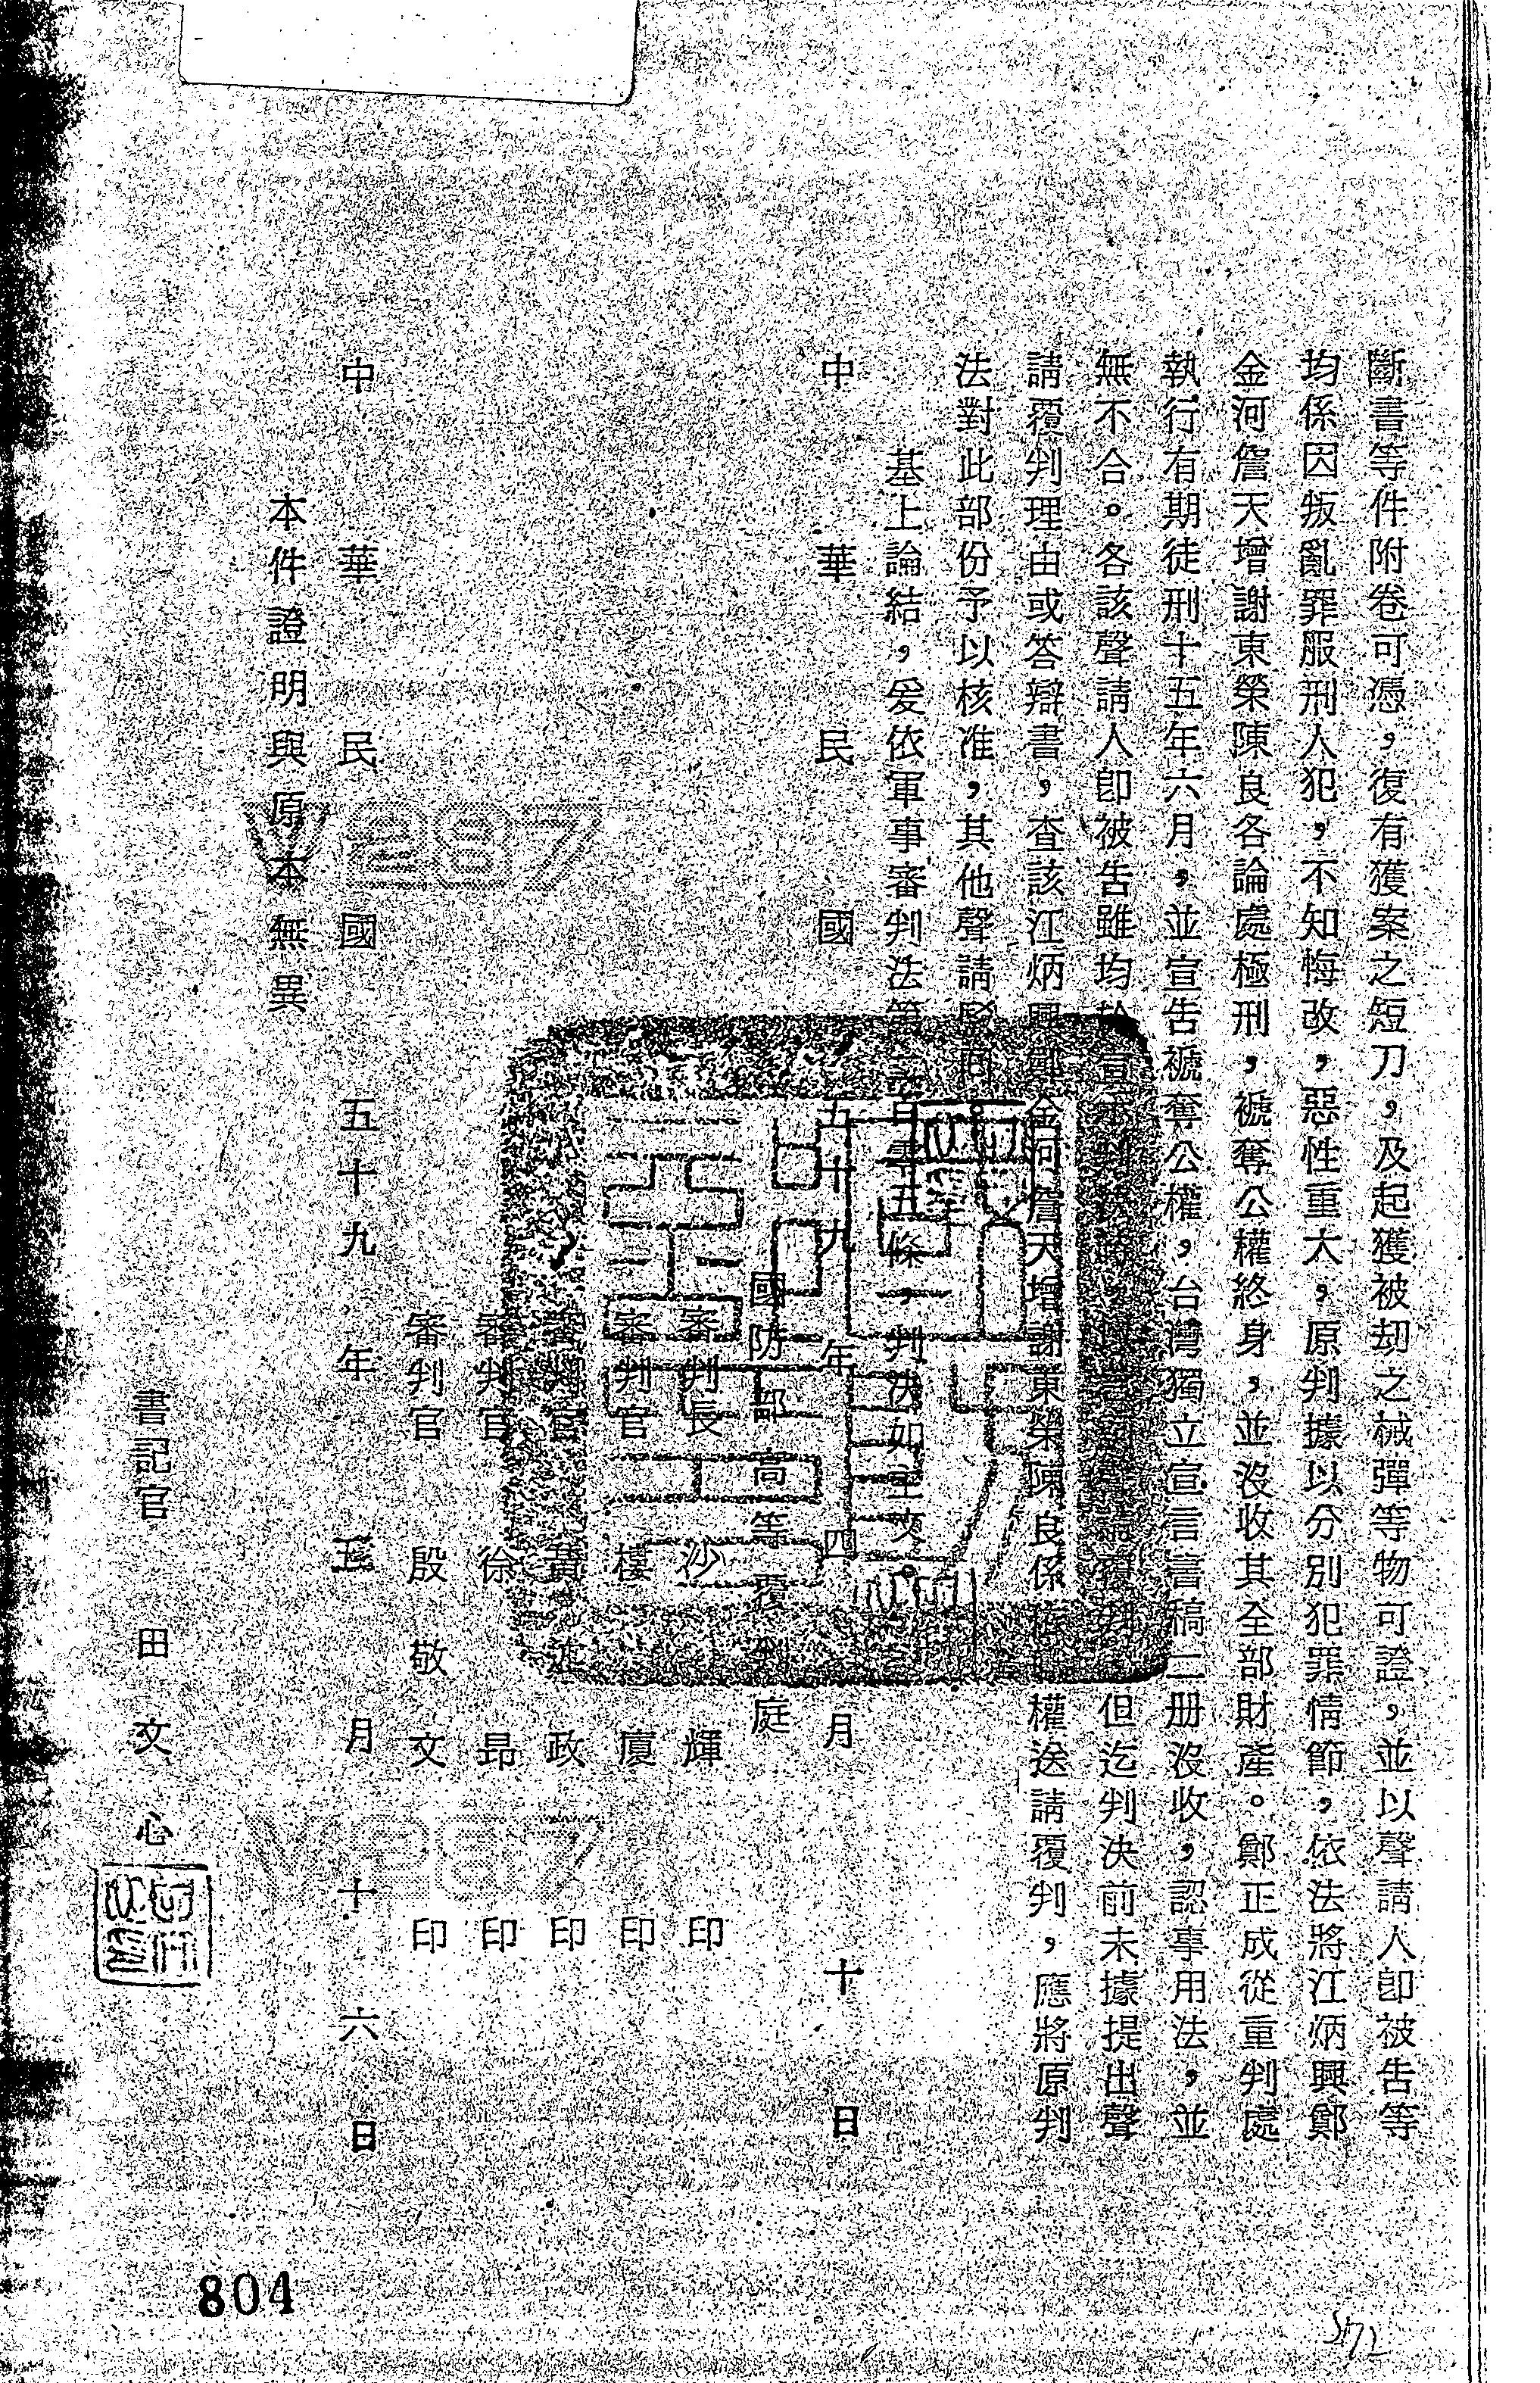 斷書等件附卷可憑，復有獲案之短刀，及起獲被刧之械彈等物可證，並以聲請人卽被告等
均係因叛亂罪服刑人犯，不知悔改，惡性重大，原判據以分別犯罪情節，依法將江炳興鄭
金河詹天增謝東榮陳良各論處極刑，褫奪公權終身，並沒收其全部財產。鄭正成從重判處
執行有期徒刑十五年六月，並宣告褫奪公權，台灣獨立宣言書稿二册沒收，認事用法，並
無不合。各該聲請人卽被告雖均於宣示判決時，但迄判決前未據提出聲
請覆判理由或答辯書，查該江炳興鄭金河詹天增謝東榮陳良係依職權送請覆判，應將原判
法對此部份予以核准，其他聲請駁回
基上論結，爰依軍事審判法第二百零五條，判決如主文。
中華民國五十九年四月十日
國防部高等覆判庭
審判長沙輝印
審判官樓廈印
審判官黃政印
審判官徐昂印
審判官殷敬文印
中華民國五十九年月十六日
本件證明與原本無異
書記官田文心
V287
V287
804